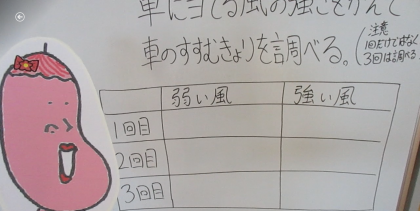 車に当てる風の強さをかんて
車のすすむきょりを調べる。
(注意
1回だけではなく
3回は調べる。
弱い風 強い風
1回目
2回目
3回目